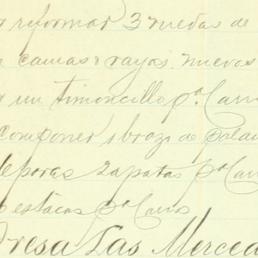 reformar 3 ruedas de
camas y rayos nuevos
un timoncillo pa. Carro
componer 1 brazo de
pares zapatas pa. Carro
estacas pa. Carro
Presa Las Merced